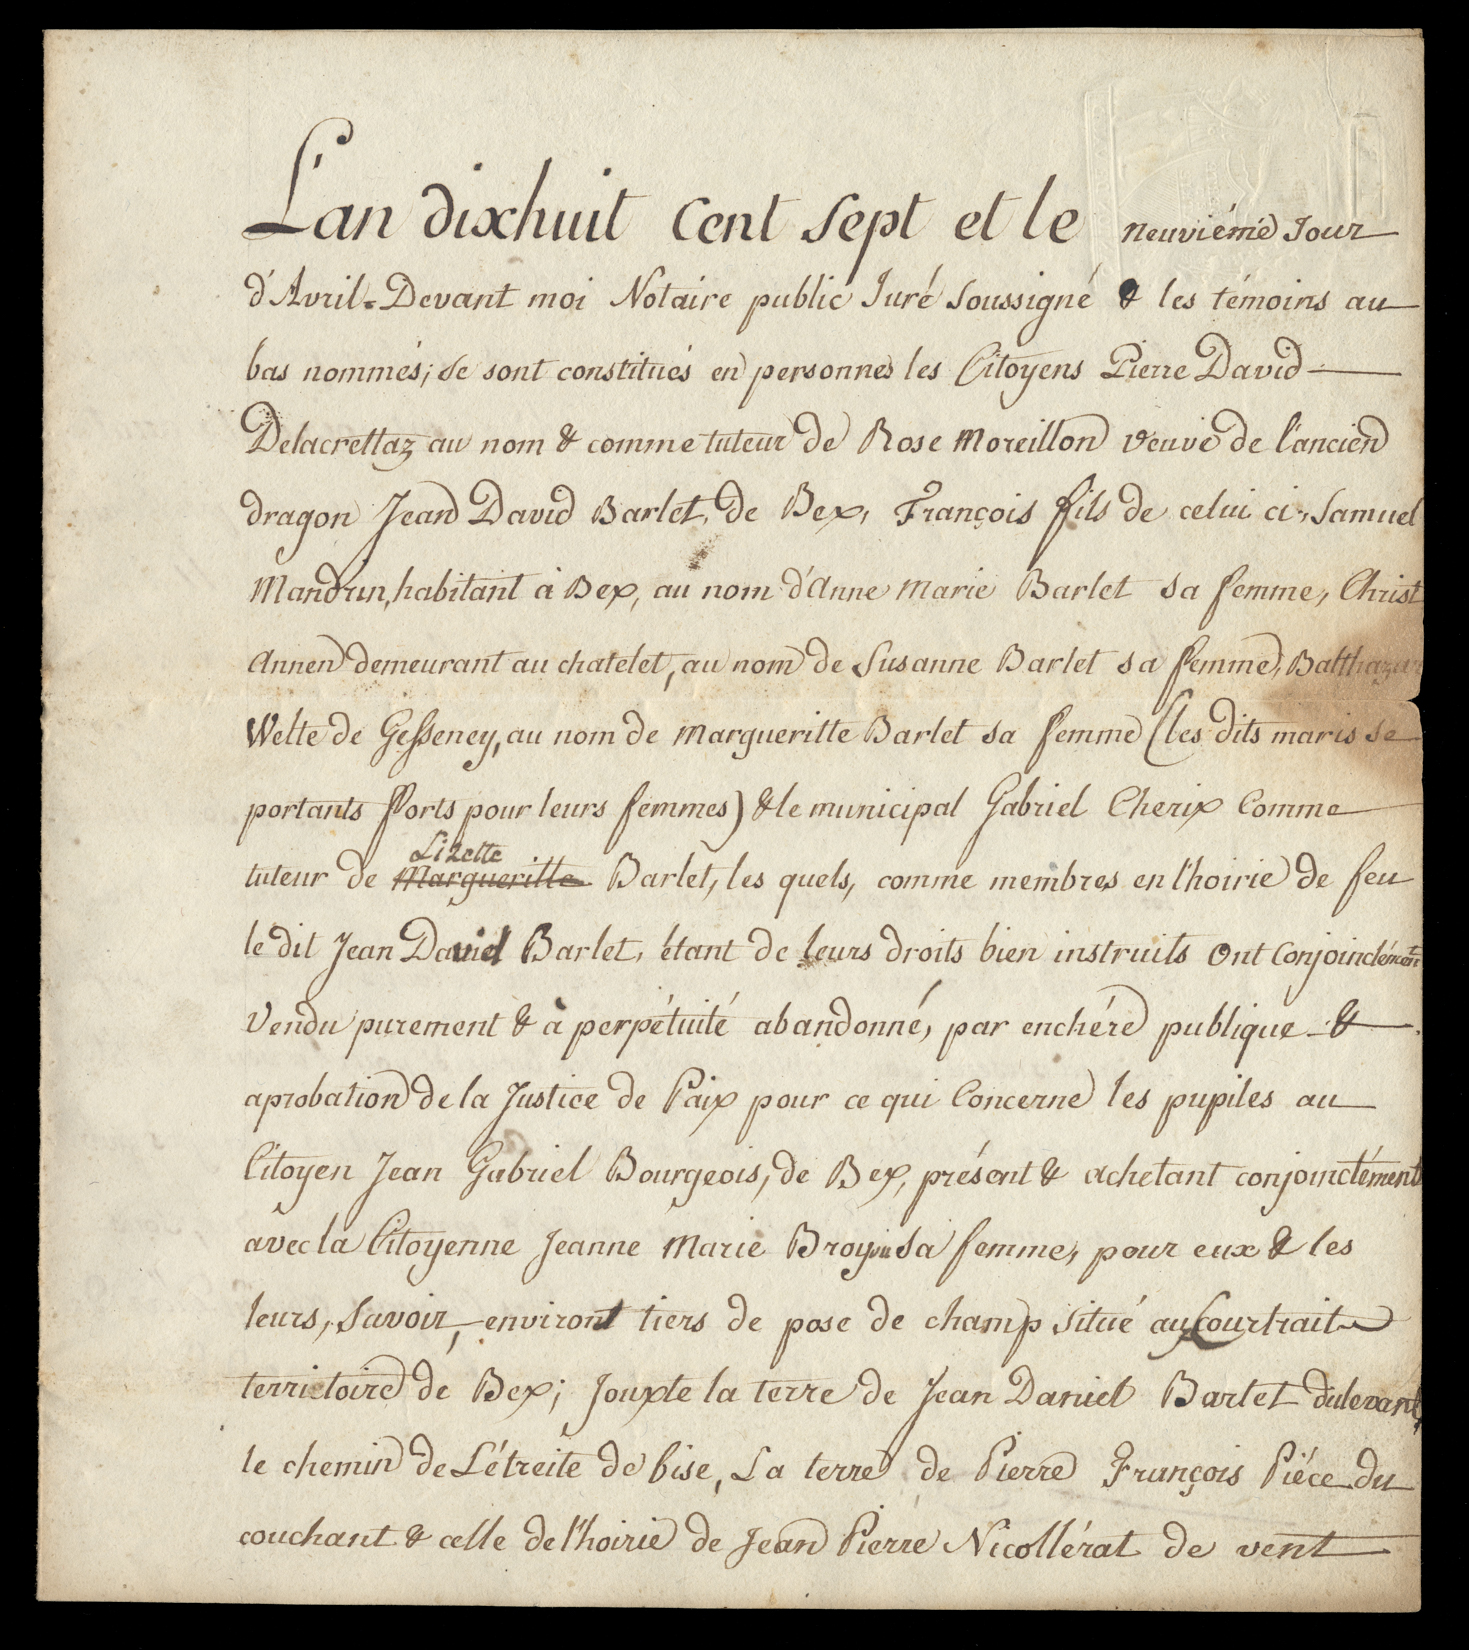 L'an dixhuit Cent Sept et le neuviéme Jour
d'Avril. Devant moi Notaire public Juré Soussigné & les témoins au
bas nommés; se sont constitués en personnes les Citoyens Pierre David
Delacrettaz au nom & comme tuteur de Rose Moreillon veuve de l'ancien
dragon Jean David Barlet, de Bex, François fils de celui ci, Samuel
Mandrin, habitant à Bex, au nom d'Anne Marie Barlet sa femme, Christ
Annen demeurant au chatelet, au nom de Susanne Barlet sa femme, Balthazar
Welte de Gesseney, au nom de Margueritte Barlet sa femme (les dits maris se
portants Forts pour leurs femmes) & le municipal Gabriel Cherix Comme
Lizette
tuteur de Margueritte Barlet, les quels, comme membres en l'hoirie de feu
le dit Jean David Barlet, étant de leurs droits bien instruits Ont Conjoinctément
Vendu purement & à perpétuité abandonné, par enchére publique &
aprobation de la Justice de Paix pour ce qui Concerne les pupiles au
Citoyen Jean Gabriel Bourgeois, de Bex, présent & achetant conjoinctément
avec la Citoyenne Jeanne Marie Broyon Sa femme, pour eux & les
leurs, Savoir, environ tiers de pose de champ situé au Courtrait
territoire de Bex; Jouxte la terre de Jean Daniel Barlet du levant,
le chemin de L'étreite de bise, La terre de Pierre François Piéce du
couchant & celle de l'hoirie de Jean Pierre Nicollérat de vent